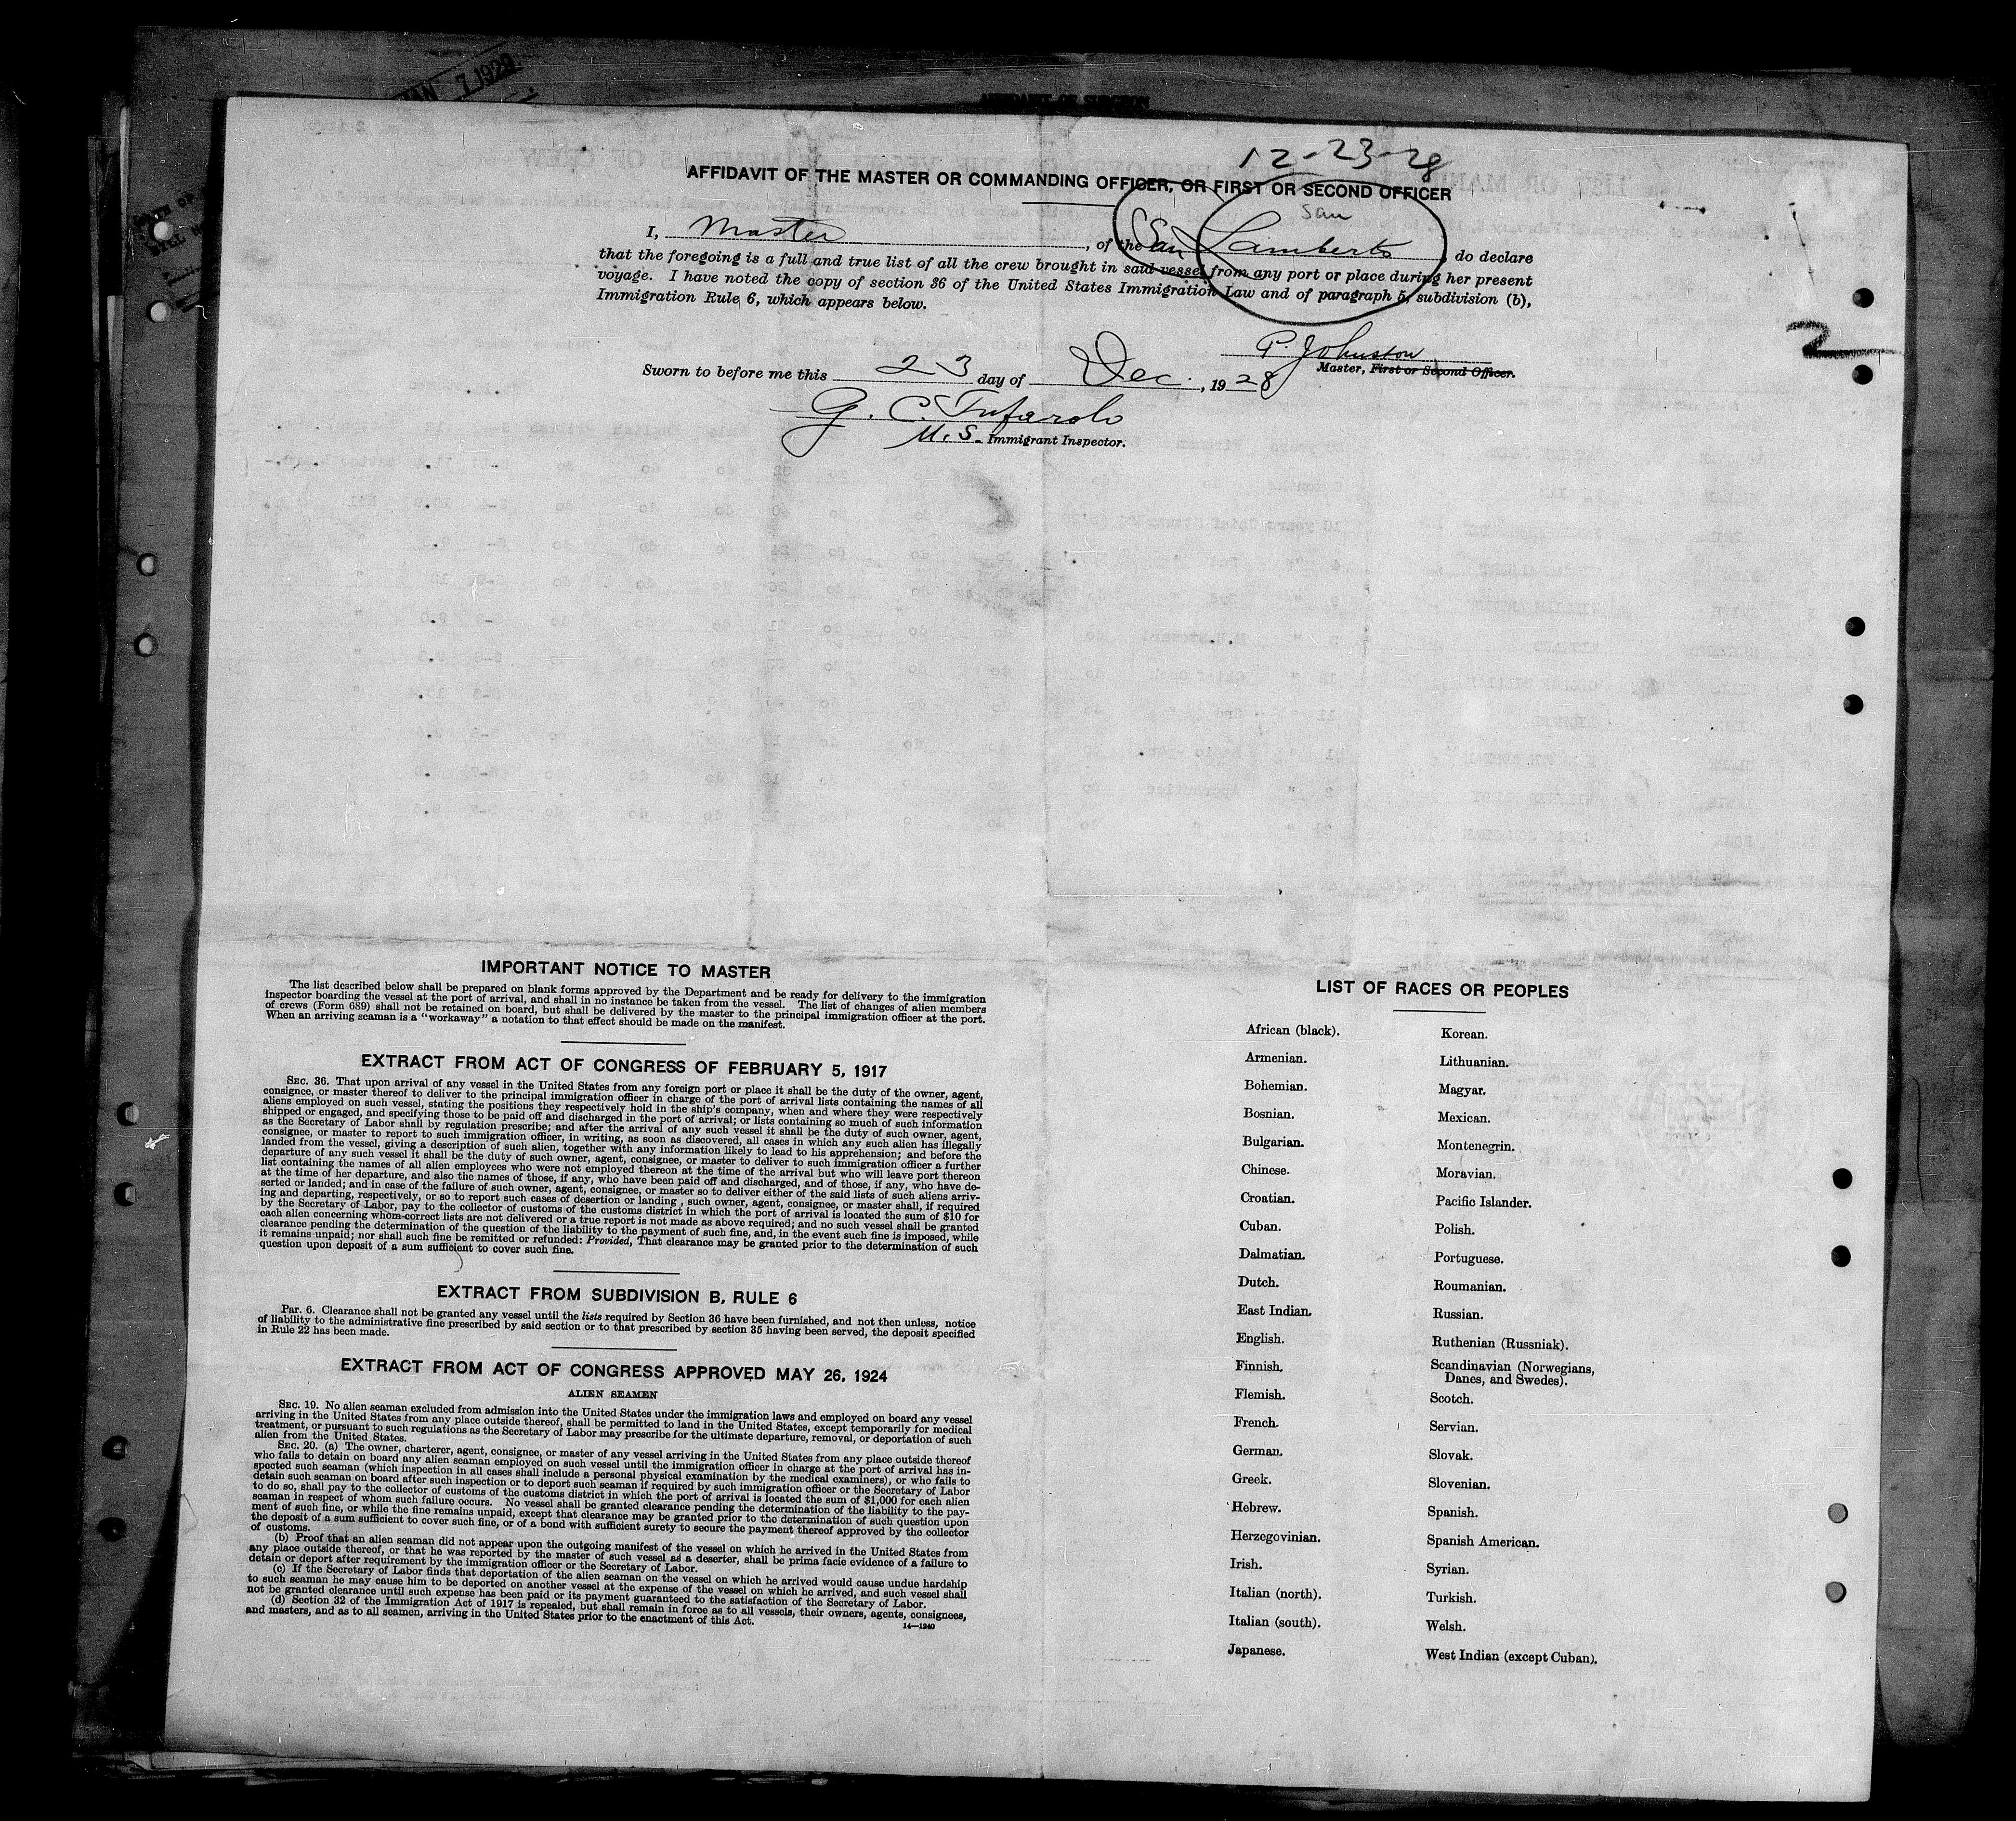 JAN 7 1929
AFFIDAVIT OF SURGEON
12-23-28
AFFIDAVIT OF THE MASTER OR COMMANDING OFFICER, OR FIRST OR SECOND OFFICER
San
I, Master, of the San Lamberto do declare
that the foregoing is a full and true list of all the crew brought in said vessel from any port or place during her present
voyage. I have noted the copy of section 36 of the United States Immigration Law and of paragraph 5, subdivision (b),
Immigration Rule 6, which appears below.
P. Johnston
Master, First or Second Officer.
2
Sworn to before me this 23 day of Dec., 1928
G. C. Tufarolo
U.S. Immigrant Inspector.
IMPORTANT NOTICE TO MASTER
The list described below shall be prepared on blank forms approved by the Department and be ready for delivery to the immigration
inspector boarding the vessel at the port of arrival, and shall in no instance be taken from the vessel. The list of changes of alien members
of crews (Form 689) shall not be retained on board, but shall be delivered by the master to the principal immigration officer at the port.
When an arriving seaman is a "workaway" a notation to that effect should be made on the manifest.
EXTRACT FROM ACT OF CONGRESS OF FEBRUARY 5, 1917
SEC. 36. That upon arrival of any vessel in the United States from any foreign port or place it shall be the duty of the owner, agent,
consignee, or master thereof to deliver to the principal immigration officer in charge of the port of arrival lists containing the names of all
aliens employed on such vessel, stating the positions they respectively hold in the ship's company, when and where they were respectively
shipped or engaged, and specifying those to be paid off and discharged in the port of arrival; or lists containing so much of such information
as the Secretary of Labor shall by regulation prescribe; and after the arrival of any such vessel it shall be the duty of such owner, agent,
consignee, or master to report to such immigration officer, in writing, as soon as discovered, all cases in which any such alien has illegally
landed from the vessel, giving a description of such alien, together with any information likely to lead to his apprehension; and before the
departure of any such vessel it shall be the duty of such owner, agent, consignee, or master to deliver to such immigration officer a further
list containing the names of all alien employees who were not employed thereon at the time of the arrival but who will leave port thereon
at the time of her departure, and also the names of those, if any, who have been paid off and discharged, and of those, if any, who have de-
serted or landed; and in case of the failure of such owner, agent, consignee, or master so to deliver either of the said lists of such aliens arriv-
ing and departing, respectively, or so to report such cases of desertion or landing, such owner, agent, consignee, or master shall, if required
by the Secretary of Labor, pay to the collector of customs of the customs district in which the port of arrival is located the sum of $10 for
each alien concerning whom correct lists are not delivered or a true report is not made as above required; and no such vessel shall be granted
clearance pending the determination of the question of the liability to the payment of such fine, and, in the event such fine is imposed, while
it remains unpaid; nor shall such fine be remitted or refunded: Provided, That clearance may be granted prior to the determination of such
question upon deposit of a sum sufficient to cover such fine.
EXTRACT FROM SUBDIVISION B, RULE 6
Par. 6. Clearance shall not be granted any vessel until the lists required by Section 36 have been furnished, and not then unless, notice
of liability to the administrative fine prescribed by said section or to that prescribed by section 35 having been served, the deposit specified
in Rule 22 has been made.
EXTRACT FROM ACT OF CONGRESS APPROVED MAY 26, 1924
ALIEN SEAMEN
SEC. 19. No alien seaman excluded from admission into the United States under the immigration laws and employed on board any vessel
arriving in the United States from any place outside thereof, shall be permitted to land in the United States, except temporarily for medical
treatment, or pursuant to such regulations as the Secretary of Labor may prescribe for the ultimate departure, removal, or deportation of such
alien from the United States.
SEC. 20. (a) The owner, charterer, agent, consignee, or master of any vessel arriving in the United States from any place outside thereof
who fails to detain on board any alien seaman employed on such vessel until the immigration officer in charge at the port of arrival has in-
spected such seaman (which inspection in all cases shall include a personal physical examination by the medical examiners), or who fails to
detain such seaman on board after such inspection or to deport such seaman if required by such immigration officer or the Secretary of Labor
to do so, shall pay to the collector of customs of the customs district in which the port of arrival is located the sum of $1,000 for each alien
seaman in respect of whom such failure occurs. No vessel shall be granted clearance pending the determination of the liability to the pay-
ment of such fine, or while the fine remains unpaid, except that clearance may be granted prior to the determination of such question upon
the deposit of a sum sufficient to cover such fine, or of a bond with sufficient surety to secure the payment thereof approved by the collector
of customs.
(b) Proof that an alien seaman did not appear upon the outgoing manifest of the vessel on which he arrived in the United States from
any place outside thereof, or that he was reported by the master of such vessel as a deserter, shall be prima facie evidence of a failure to
detain or deport after requirement by the immigration officer or the Secretary of Labor.
(c) If the Secretary of Labor finds that deportation of the alien seaman on the vessel on which he arrived would cause undue hardship
to such seaman he may cause him to be deported on another vessel at the expense of the vessel on which he arrived, and such vessel shall
not be granted clearance until such expense has been paid or its payment guaranteed to the satisfaction of the Secretary of Labor.
(d) Section 32 of the Immigration Act of 1917 is repealed, but shall remain in force as to all vessels, their owners, agents, consignees,
and masters, and as to all seamen, arriving in the United States prior to the enactment of this Act.
14—1240
LIST OF RACES OR PEOPLES
African (black).
Armenian.
Bohemian.
Bosnian.
Bulgarian.
Chinese.
Croatian.
Cuban.
Dalmatian.
Dutch.
East Indian.
English.
Finnish.
Flemish.
French.
German.
Greek.
Hebrew.
Herzegovinian.
Irish.
Italian (north).
Italian (south).
Japanese.
Korean.
Lithuanian.
Magyar.
Mexican.
Montenegrin.
Moravian.
Pacific Islander.
Polish.
Portuguese.
Roumanian.
Russian.
Ruthenian (Russniak).
Scandinavian (Norwegians,
Danes, and Swedes).
Scotch.
Servian.
Slovak.
Slovenian.
Spanish.
Spanish American.
Syrian.
Turkish.
Welsh.
West Indian (except Cuban).